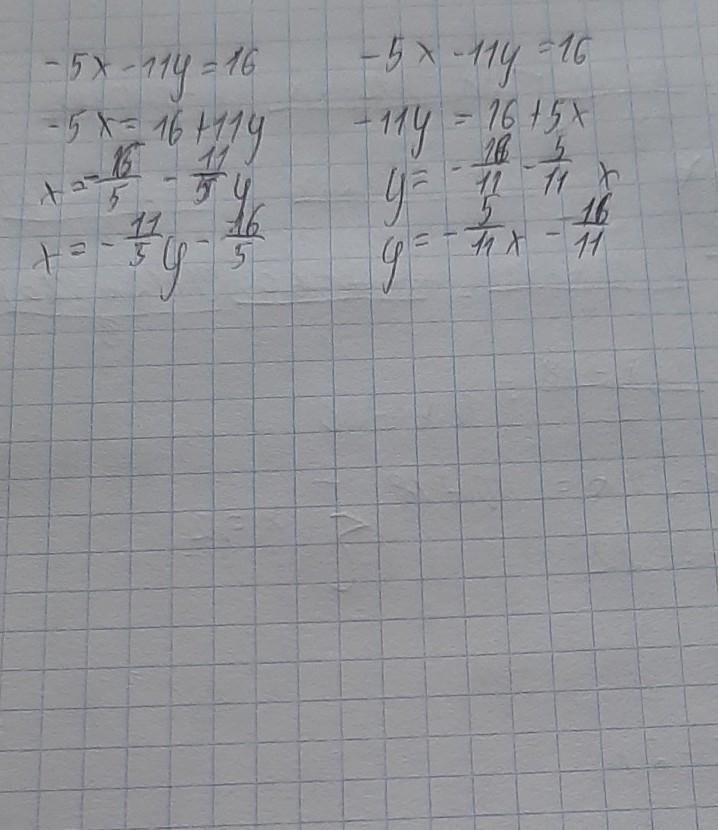 -5x-11y=16
-5x=16+11y
x=-16/5 - 11/5 y
x=-11/5 y - 16/5
-5x-11y=16
-11y=16+5x
y=-16/11 - 5/11 x
y=-5/11 x - 16/11